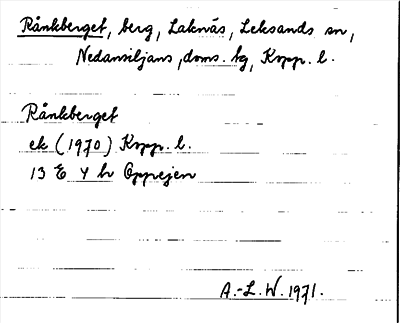 Rånkberget, berg, Laknäs, Leksands sn,
Nedansiljans, doms. tg, Kopp. l.
Rånkberget
ek (1970) Kopp. l.
13 E 4 h Opprejen
A.-L. W. 1971.